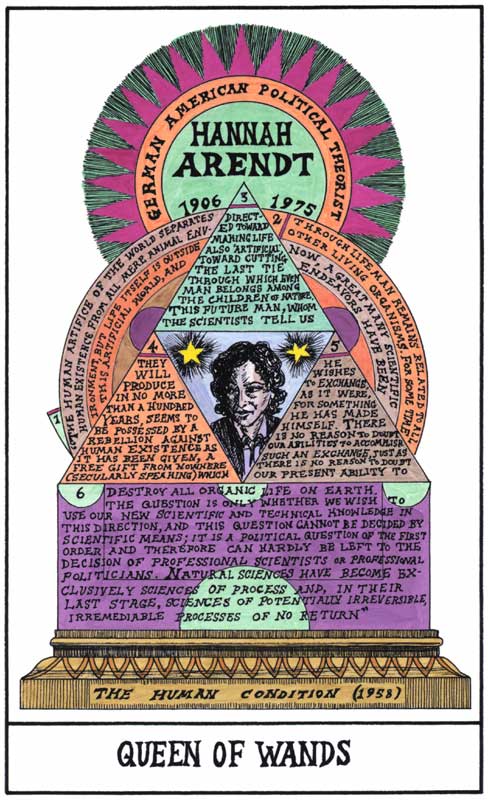 GERMAN AMERICAN POLITICAL THEORIST
HANNAH
ARENDT
1906 1975
1
"THE HUMAN ARTIFICE OF THE WORLD SEPARATES
HUMAN EXISTENCE FROM ALL MERE ANIMAL ENV-
IRONMENT BUT LIFE ITSELF IS OUTSIDE
THIS ARTIFICIAL WORLD, AND
2
THROUGH LIFE MAN REMAINS RELATED TO ALL
OTHER LIVING ORGANISMS. FOR SOME TIME
NOW A GREAT MANY SCIENTIFIC
ENDEAVORS HAVE BEEN
3
DIRECT-
ED TOWARD
MAKING LIFE
ALSO "ARTIFICIAL"
TOWARD CUTTING
THE LAST TIE
THROUGH WHICH EVEN
MAN BELONGS AMONG
THE CHILDREN OF NATURE.
THIS FUTURE MAN, WHOM
THE SCIENTISTS TELL US
4
THEY
WILL
PRODUCE
IN NO MORE
THAN A HUNDRED
YEARS, SEEMS TO
BE POSSESSED BY A
REBELLION AGAINST
HUMAN EXISTENCE AS
IT HAS BEEN GIVEN, A
FREE GIFT FROM NOWHERE
(SECULARLY SPEAKING) WHICH
5
HE
WISHES
TO EXCHANGE,
AS IT WERE,
FOR SOMETHING
HE HAS MADE
HIMSELF. THERE
IS NO REASON TO DOUBT
OUR ABILITIES TO ACCOMPLISH
SUCH AN EXCHANGE, JUST AS
THERE IS NO REASON TO DOUBT
OUR PRESENT ABILITY TO
6 DESTROY ALL ORGANIC LIFE ON EARTH.
THE QUESTION IS ONLY WHETHER WE WISH TO
USE OUR NEW SCIENTIFIC AND TECHNICAL KNOWLEDGE IN
THIS DIRECTION, AND THIS QUESTION CANNOT BE DECIDED BY
SCIENTIFIC MEANS; IT IS A POLITICAL QUESTION OF THE FIRST
ORDER AND THEREFORE CAN HARDLY BE LEFT TO THE
DECISION OF PROFESSIONAL SCIENTISTS OR PROFESSIONAL
POLITICIANS. NATURAL SCIENCES HAVE BECOME EX-
CLUSIVELY SCIENCES OF PROCESS AND, IN THEIR
LAST STAGE, SCIENCES OF POTENTIALLY IRREVERSIBLE,
IRREMEDIABLE PROCESSES OF NO RETURN"
THE HUMAN CONDITION (1958)
QUEEN OF WANDS